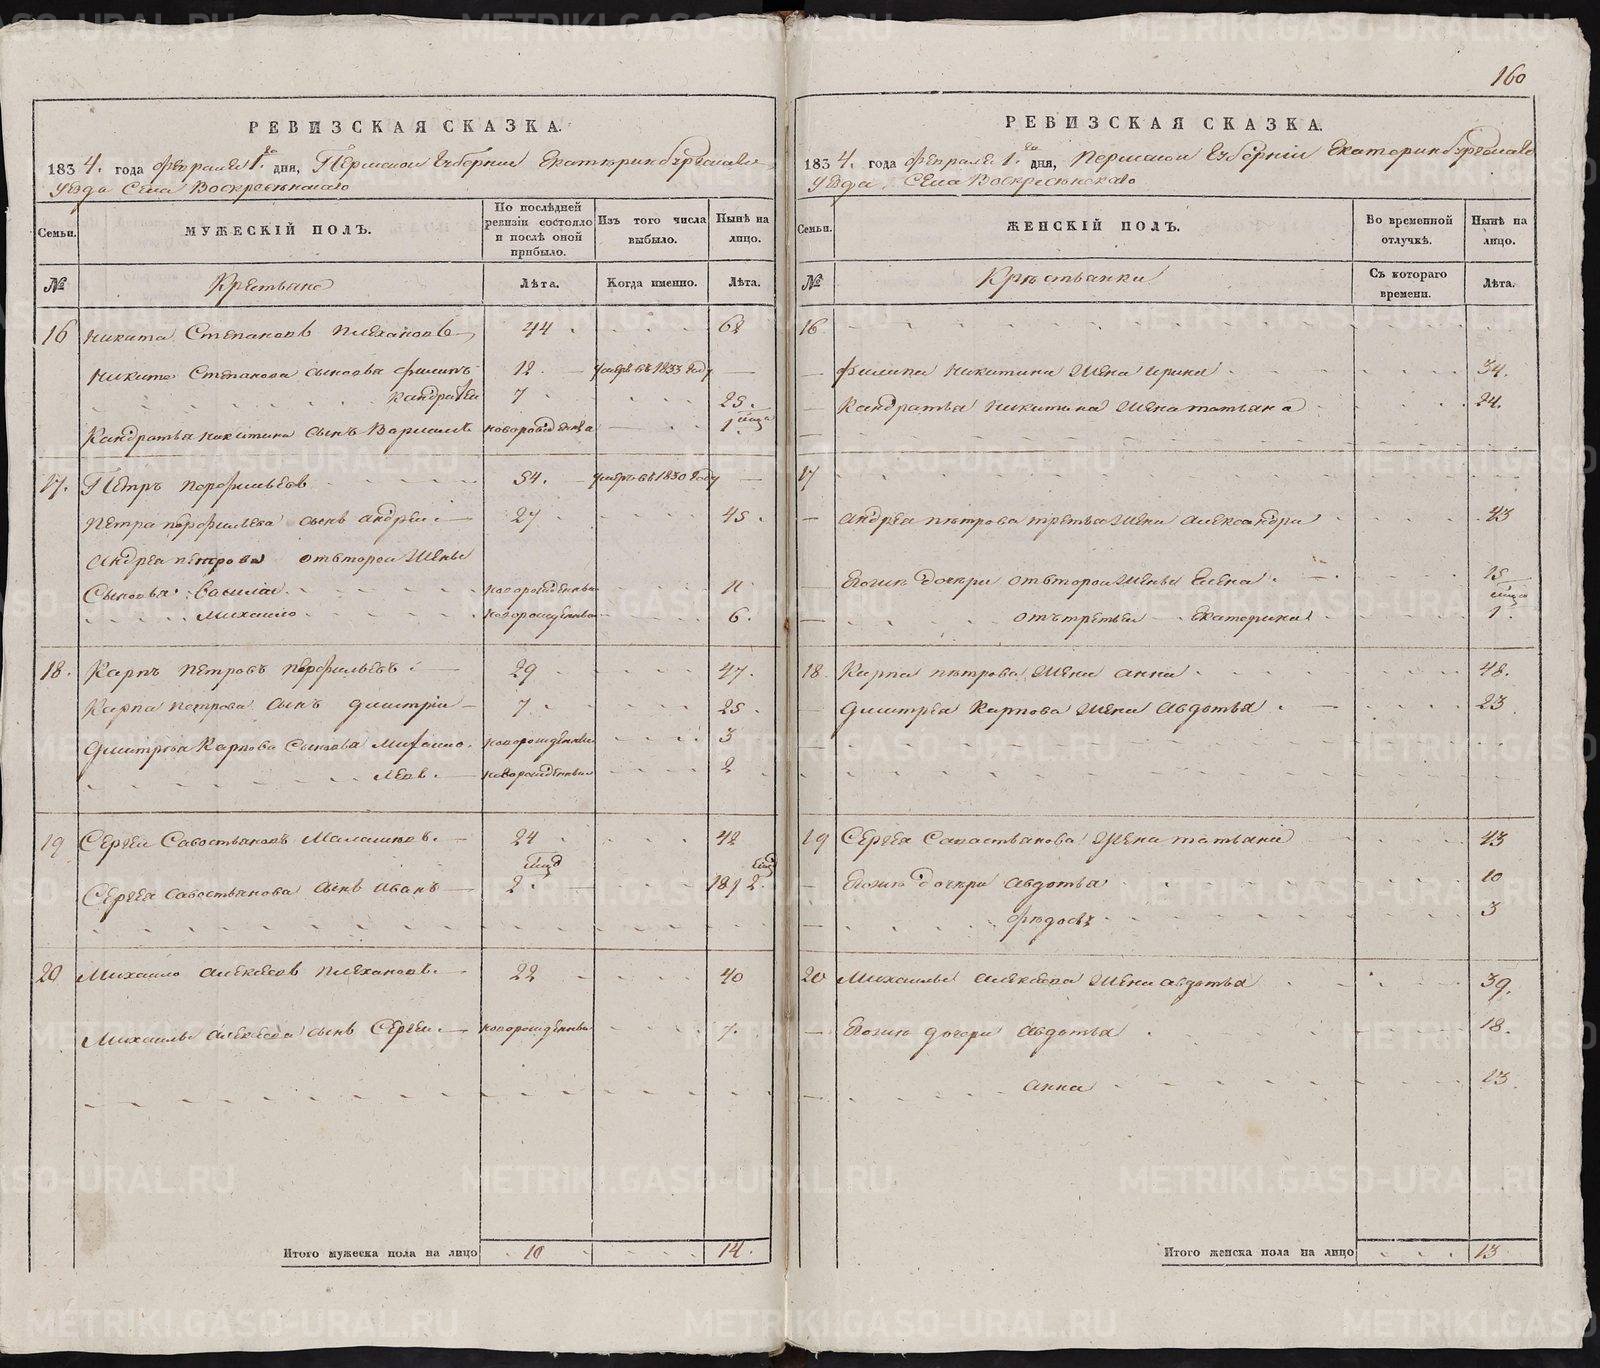 160
РЕВИЗСКАЯ СКАЗКА.
1834. года февраля 1го дня, Пермской Губернии Екатеринбургскаго
Уезда Села Воскресенскаго
Семьи. МУЖЕСКІЙ ПОЛЪ. По послѣдней ревизіи состояло и послѣ оной прибыло. Изъ того числа выбыло. Нынѣ на лицо.
№ Крестьяне Лѣта. Когда именно. Лѣта.
16 Никита Степановъ Плехановъ 44 62
Никиты Степанова сыновья Филипъ 18. умре въ 1833 году
Кандратей 7 25.
Кандратья Никитина сынъ новорожденна 1 мца
17. Петръ Перфильевъ 54. умре въ 1830 году
Петра Перфильева сынъ Андрей 27 45.
Андрея Петрова отъ второй жены
Сыновья: Василей новорожденны 11
Михайло новорожденны 6.
18. Карпъ Петровъ Перфильевъ 29 47.
Карпа Петрова сынъ Димитрій 7 25.
Дмитрея Карпова Сыновья Михайло новорожденны 3
Левъ новорожденны 2
19 Сергей Савостьяновъ Малашковъ 24 42
Сергея Савостьянова сынъ Иванъ 2 мца 18/2 мца
20 Михайло Алексеевъ Плехановъ 22 40
Михайлы Алексеева сынъ Сергей новорожденны 7.
Итого мужеска пола на лицо 10 14.
РЕВИЗСКАЯ СКАЗКА.
1834. года февраля 1го дня, Пермской Губерніи Екатеринбургскаго
Уезда Села Воскресенскаго
Семьи. ЖЕНСКІЙ ПОЛЪ. Во временной отлучкѣ. Нынѣ на лицо.
№ Крестьянки Съ котораго времени. Лѣта.
16
Филипа Никитина жена Ирина 34.
Кандратья Никитина жена татьяна 24.
17
Андрея Петрова третья жена Александра 43
Его же дочери от второй жены Елена 15
отъ третьей Екатерина 1 мца
18 Карпа Петрова жена Анна 48.
Дмитрея Карпова жена Авдотья 23
19 Сергея Савастьянова жена татьяна 43
Его же дочери Авдотья 10
Федосья 3
20 Михайлы Алексеева жена авдотья 39.
Его же дочери Авдотья 18.
анна 13.
Итого женска пола на лицо 13
METRIKI.GASO-URAL.RU